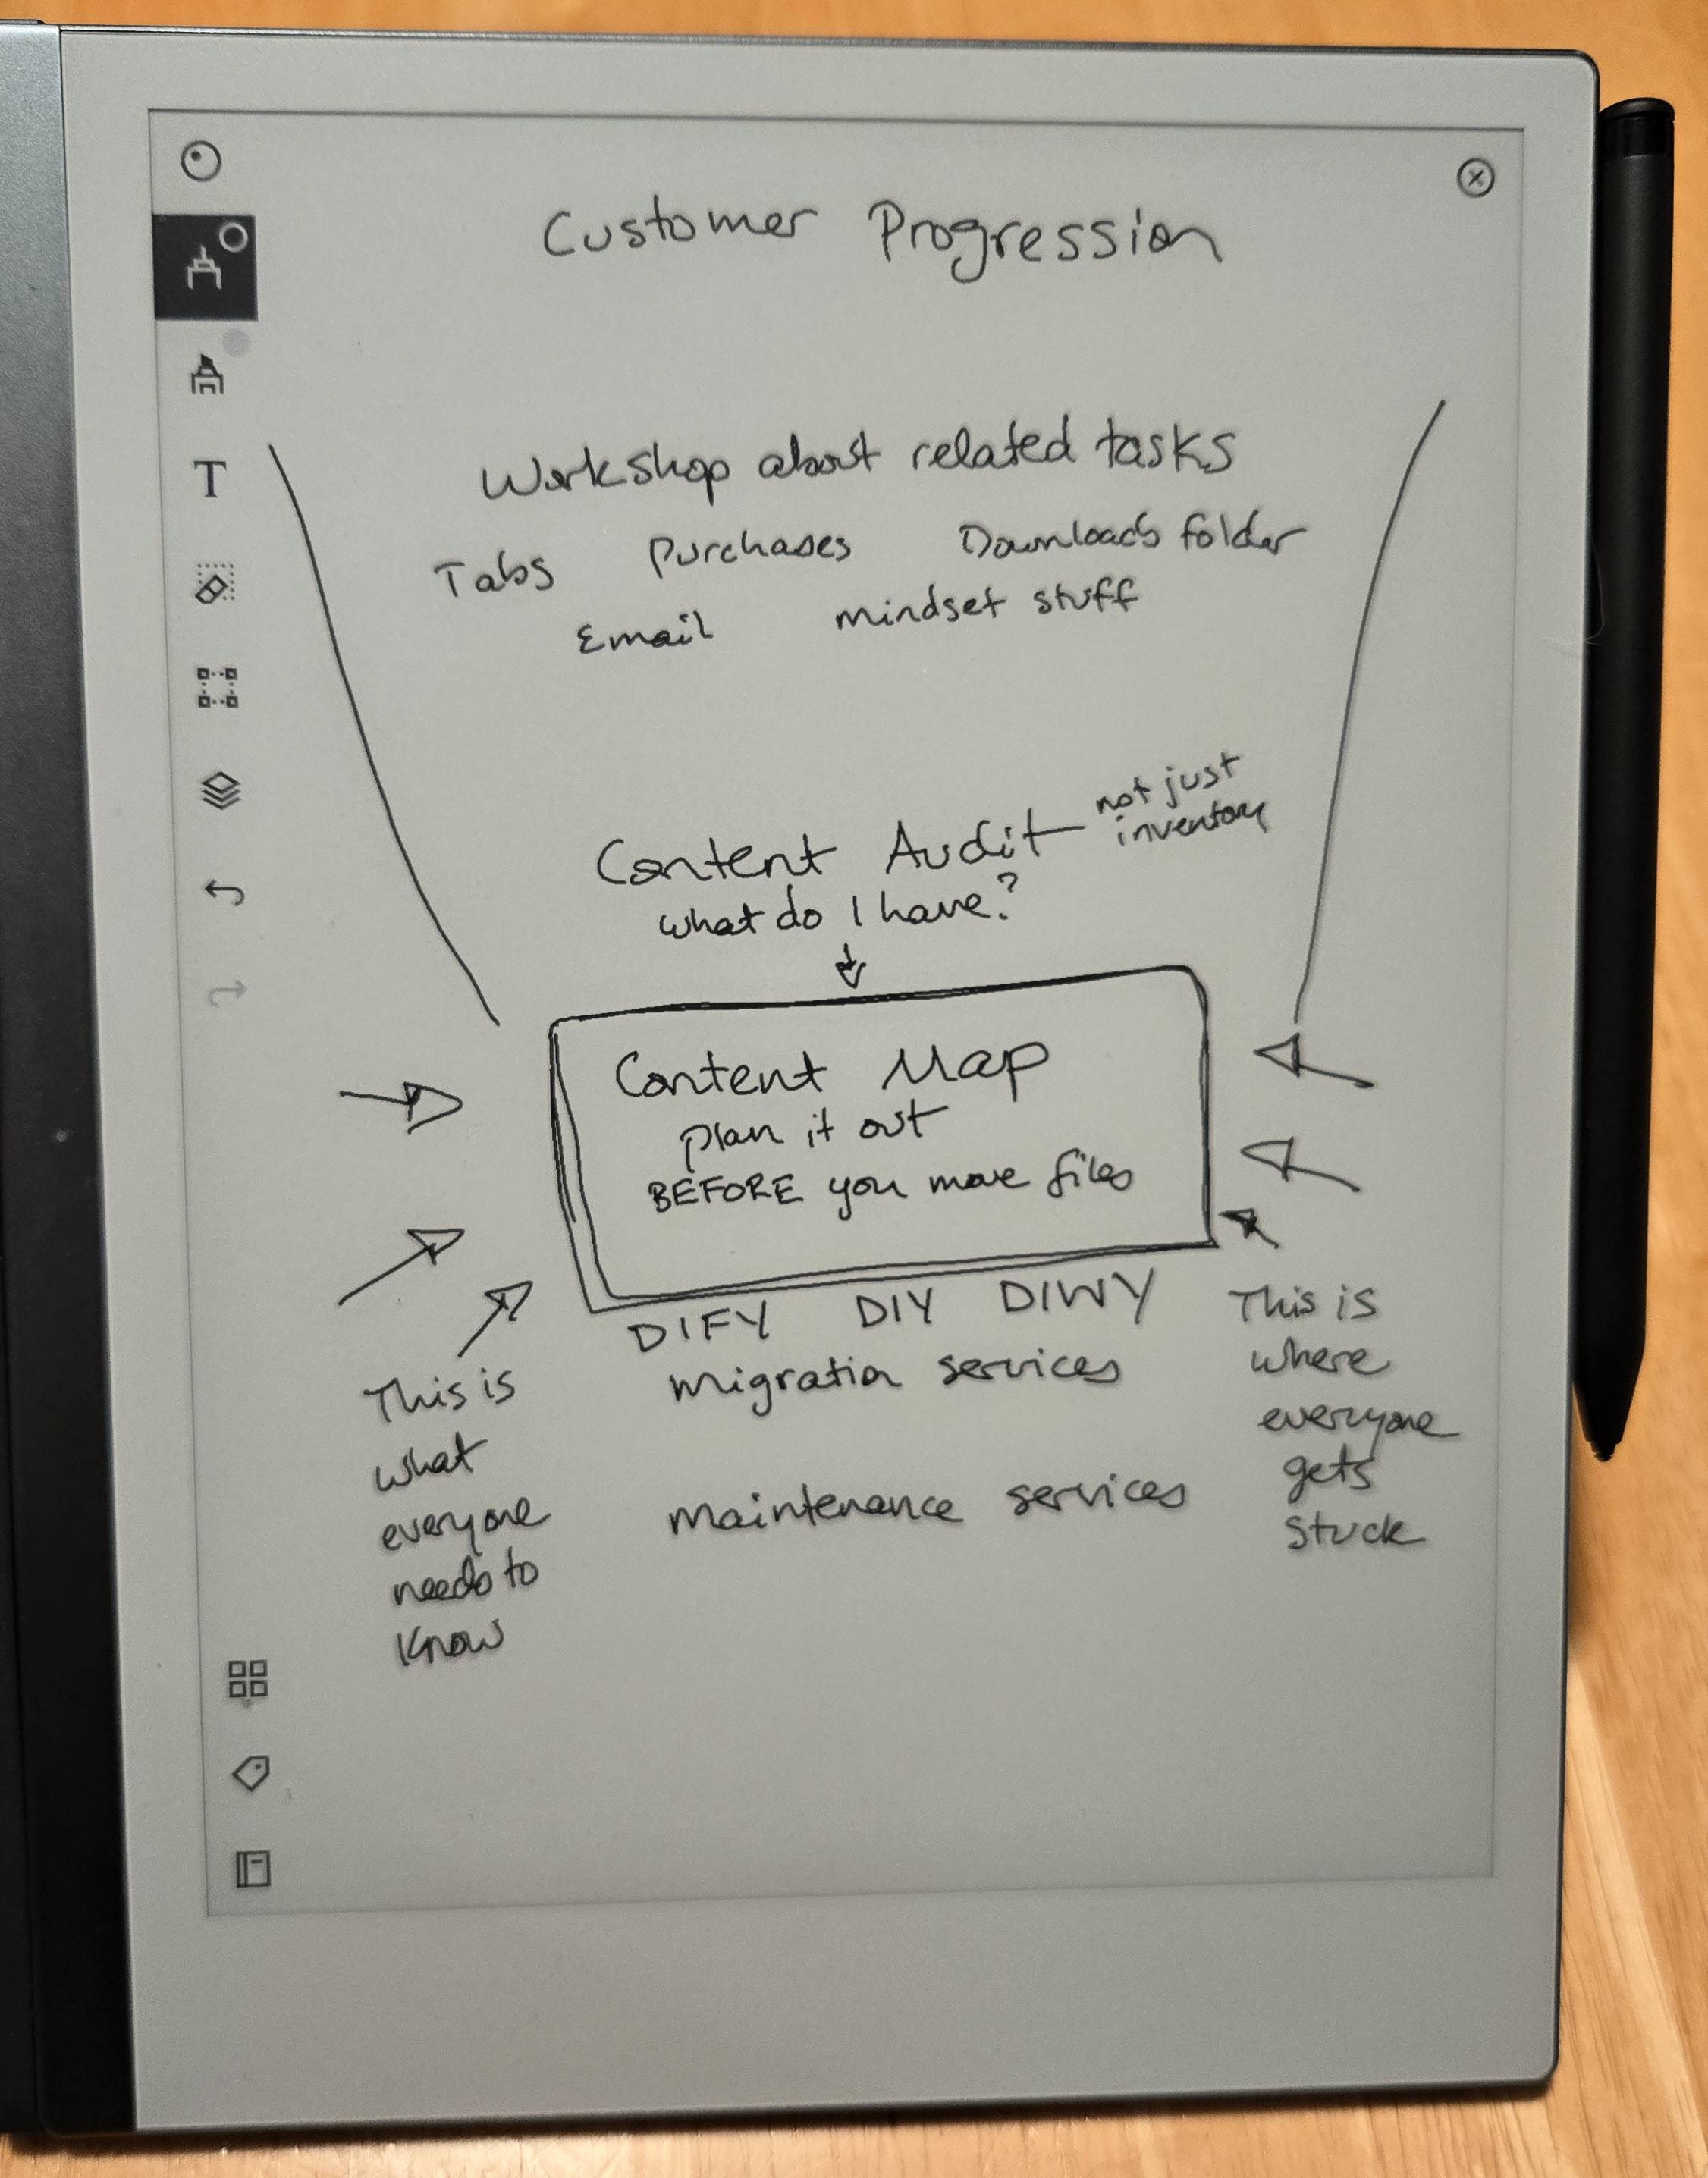 Customer Progression
Workshop about related tasks
Tabs Purchases Downloads folder
Email mindset stuff
Content Audit
not just
inventory
what do I have?
Content Map
plan it out
BEFORE you move files
DIFY DIY DIWY
migration services
maintenance services
This is
what
everyone
needs to
know
This is
where
everyone
gets
stuck
T